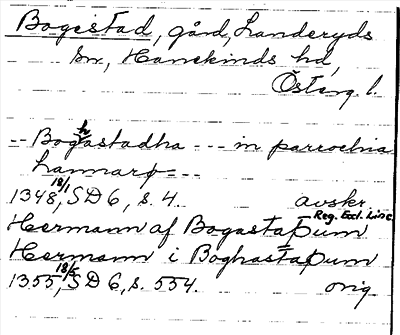 Bogestad, gård, Landeryds
sn, Hanekinds hd,
Österg. l.
-- Boghastadha --- in parrochia
Lannarp ---
1348 18/1, SD 6, s. 4. avskr.
Reg. Eccl. Linc.
Hermann af Bogastaþum
Hermann i Boghastaþum
1355 18/5, SD 6, s. 554. orig